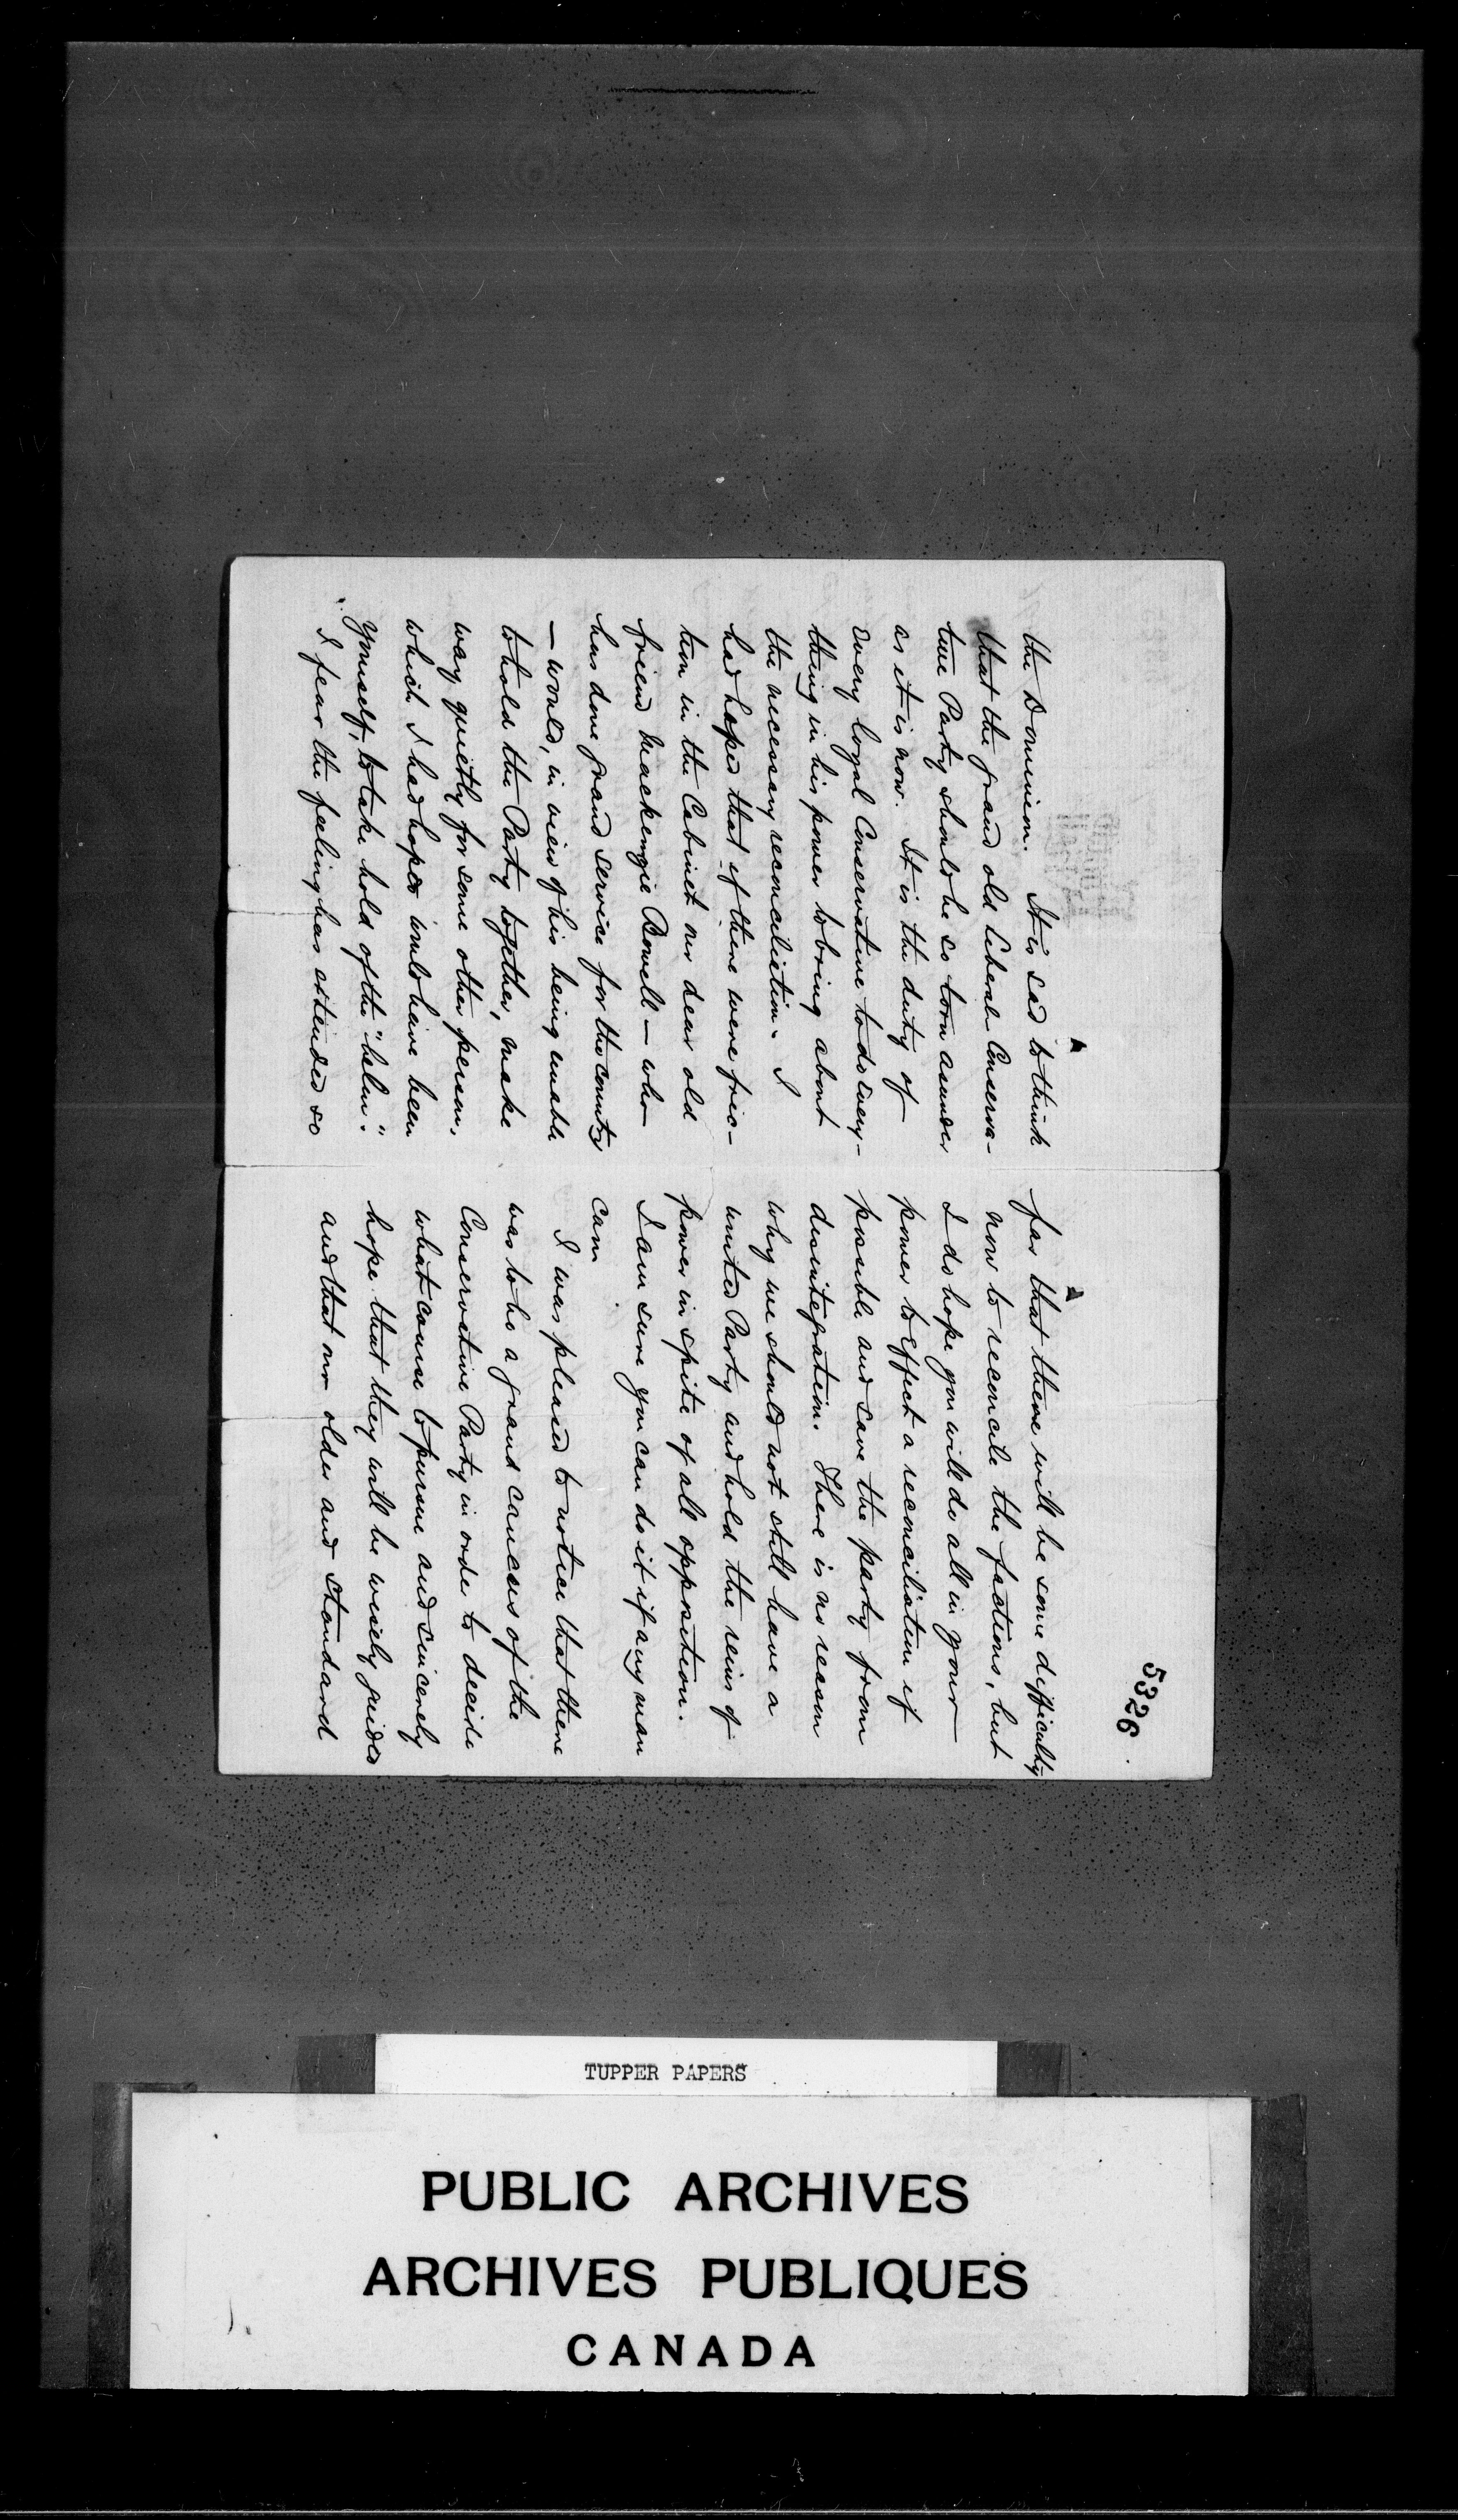 5326
the Dominion. It is sad to think
that the grand old Liberal Conserva-
tive Party should be so torn asunder
as it is now. It is the duty of
every loyal Conservative to do every-
thing in his power to bring about
the necessary reconciliation. I
had hoped that if there were fric-
tion in the Cabinet our dear old
friend Mackenzie Bowell — who
has done grand service for the country
— would, in view of his being unable
to hold the Party together, make
way quietly for some other person,
which I had hoped would have been
yourself, to take hold of the "helm".
I fear the feeling has extended so
far that there will be some difficulty
now to reconcile the factions, but
I do hope you will do all in your
power to effect a reconciliation if
possible and save the party from
disintegration. There is no reason
why we should not still have a
united Party and hold the reins of
power in spite of all opposition.
I am sure you can do it if any man
can.
I was pleased to notice that there
was to be a grand caucus of the
Conservative Party in order to decide
what course to pursue and sincerely
hope that they will be wisely guided
and that our older and standard
TUPPER PAPERS
PUBLIC ARCHIVES
ARCHIVES PUBLIQUES
CANADA